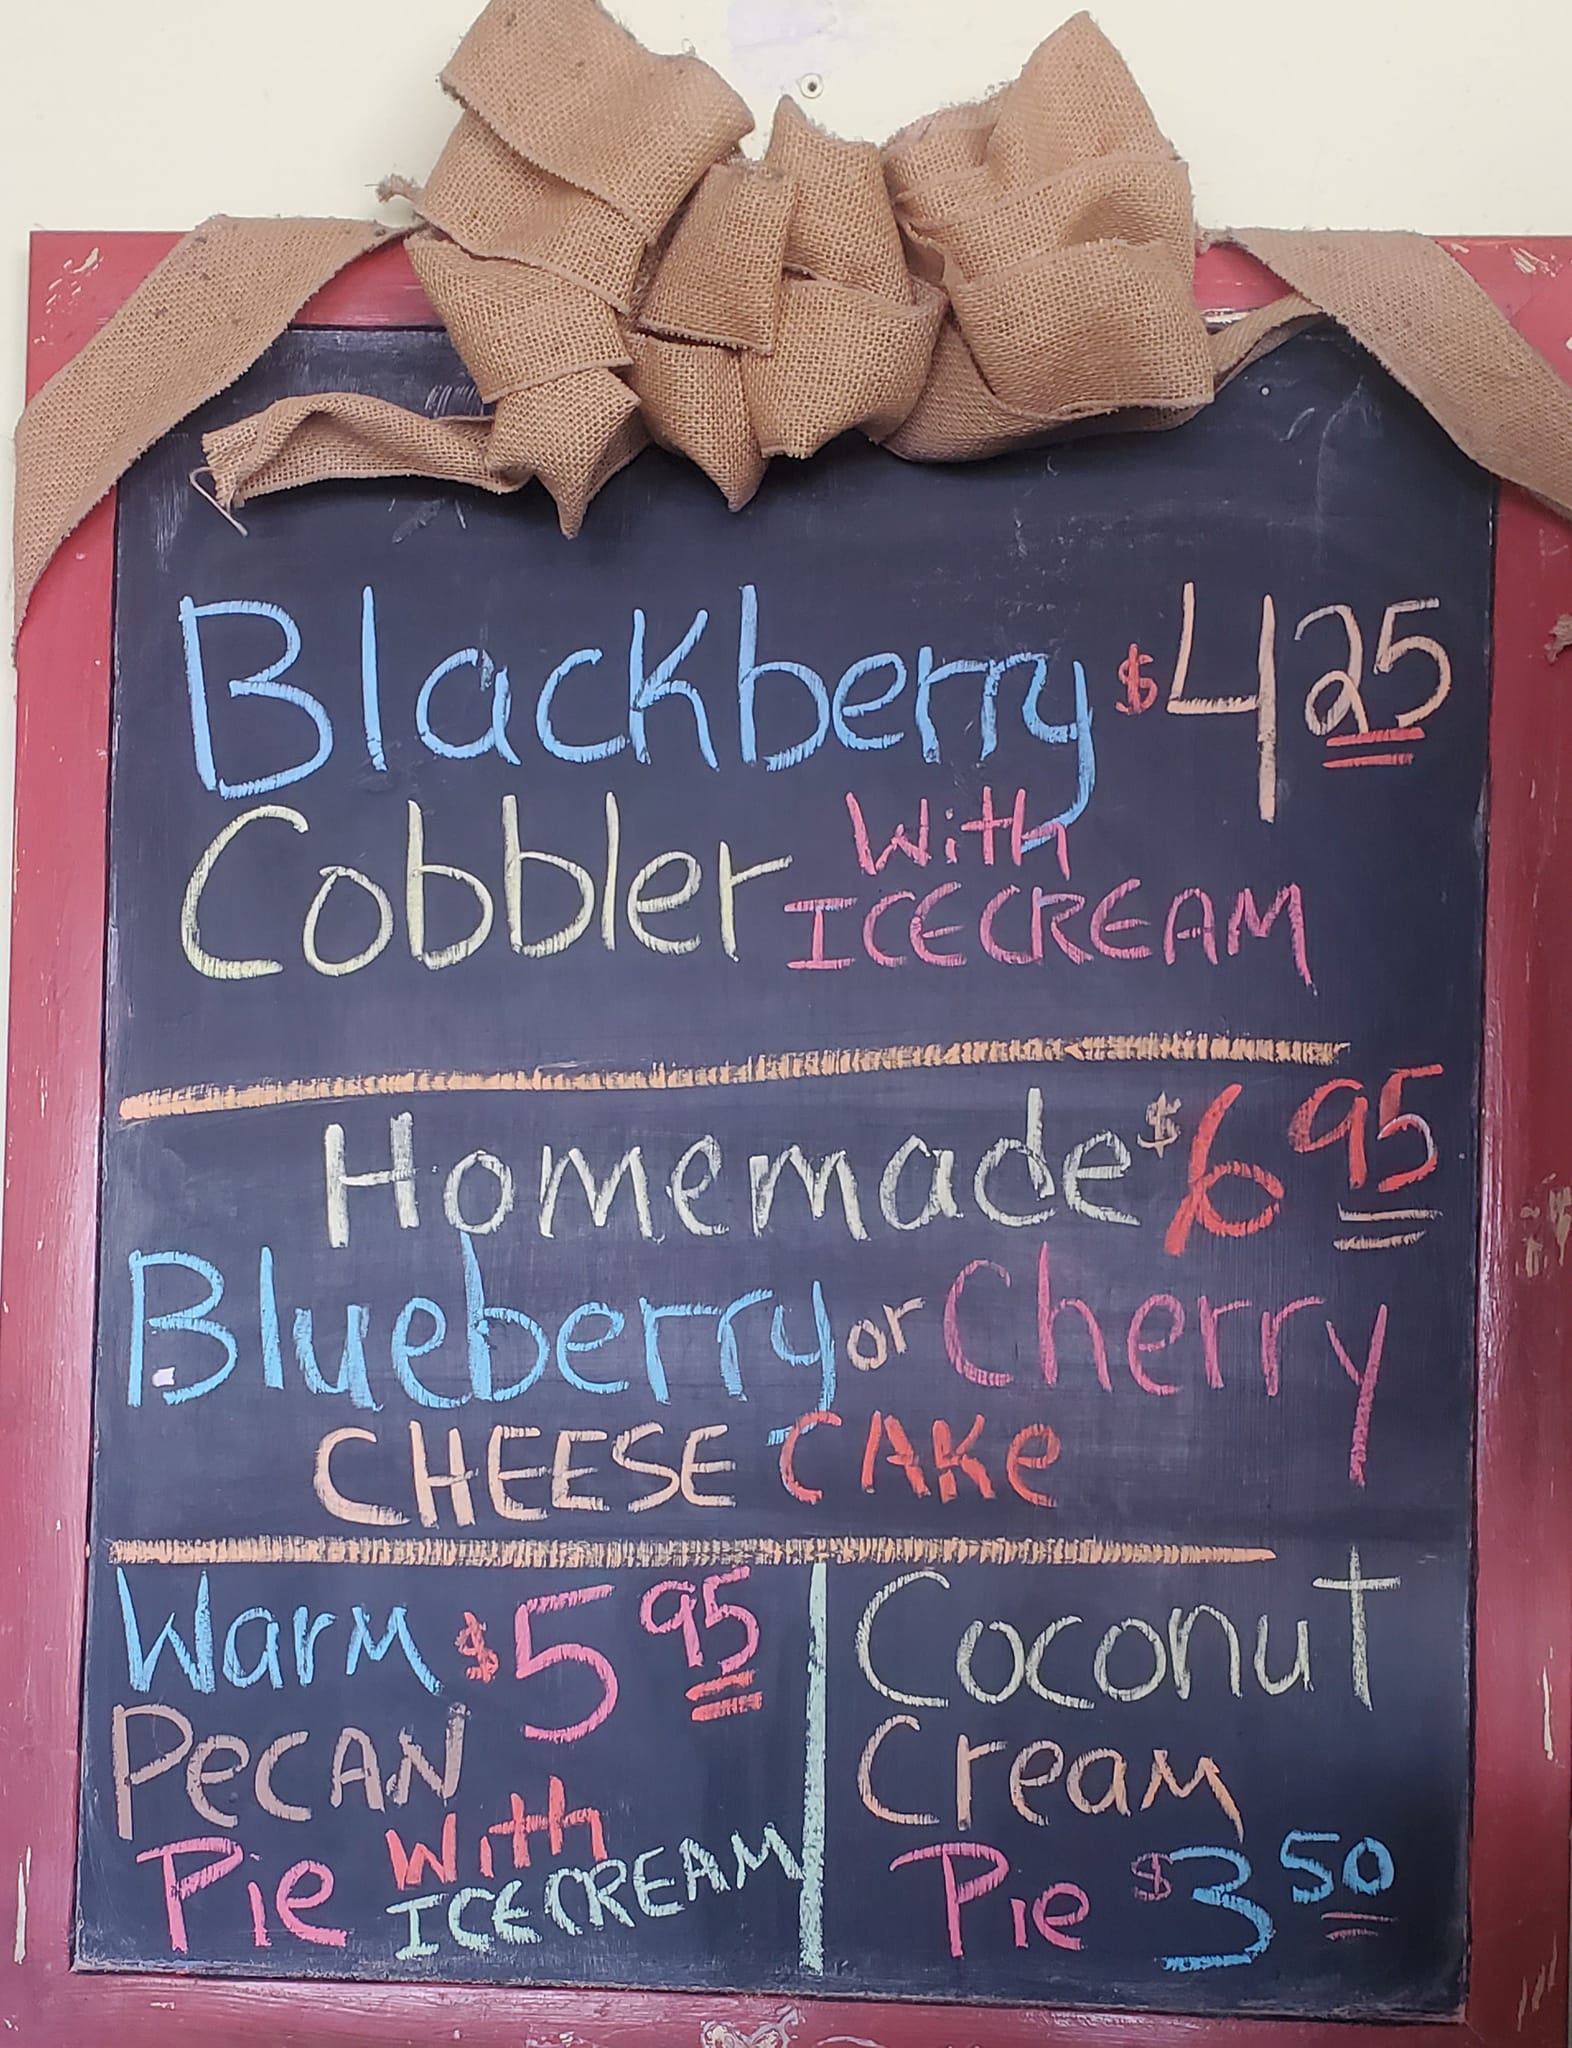 Blackberry $4 25
Cobbler With
ICECREAM
Homemade $6 95
Blueberry or Cherry
CHEESE CAKe
Warm $5 95
PeCAN
Pie With
ICECREAM
Coconut
Cream
Pie $3 50